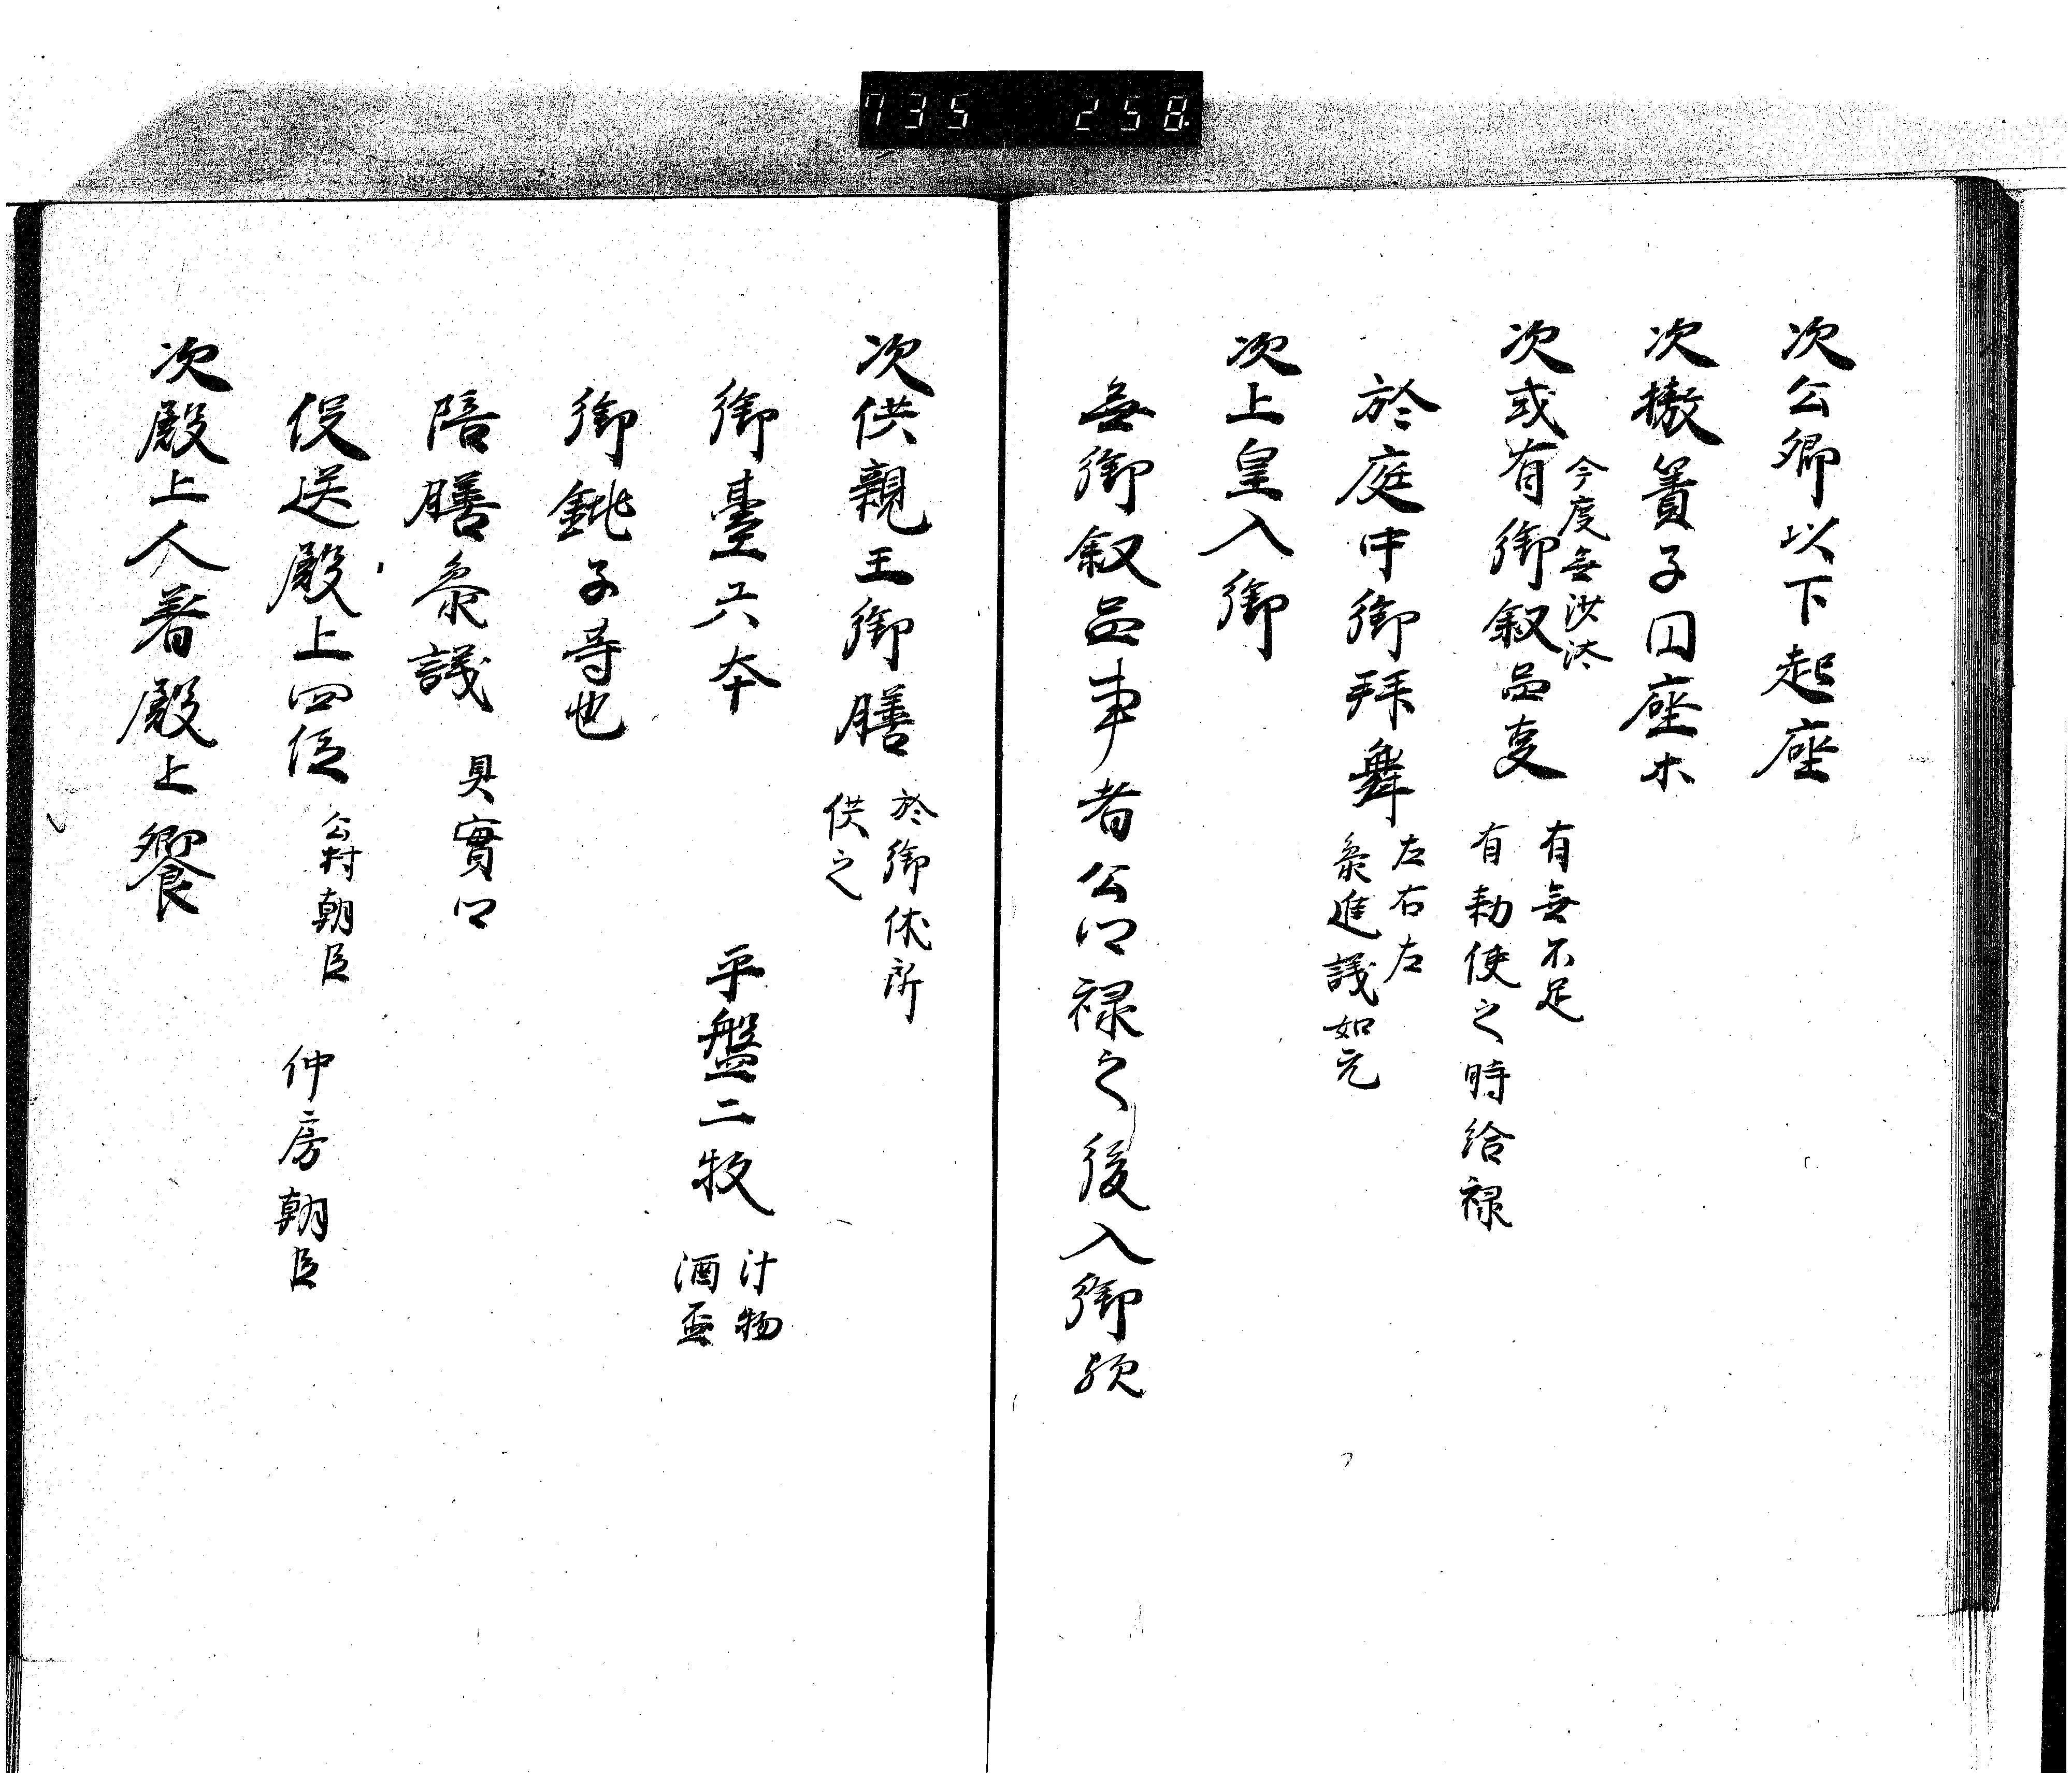 735 258
次公卿以下起座
次撤簀子円座ホ
今度無沙汰
次或有御叙品事
有無不定
有勅使之時給禄
於庭中御拝舞
左右左
参進議如元
次上皇入御
無御叙品事者公卿禄之後入御歟
次供親王御膳
於御休所
供之
御臺六本 平盤二枚
汁物
酒盃
御銚子等也
陪膳参議 具實卿
役送殿上四位 公村朝臣 仲房朝臣
次殿上人着殿上饗